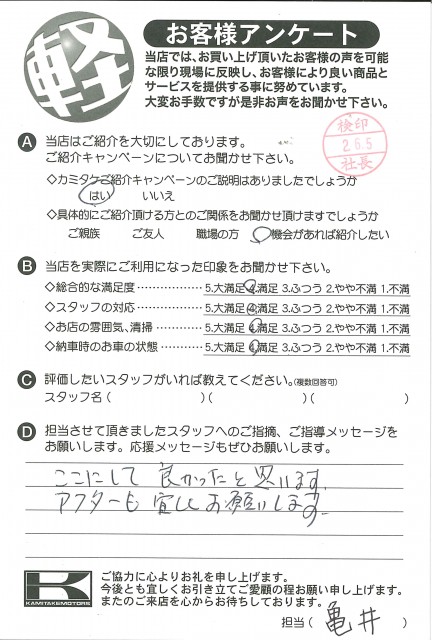 軽
お客様アンケート
当店では、お買い上げ頂いたお客様の声を可能
な限り現場に反映し、お客様により良い商品と
サービスを提供する事に努めています。
大変お手数ですが是非お声をお聞かせ下さい。
A 当店はご紹介を大切にしております。
ご紹介キャンペーンについてお聞かせ下さい。
検印
2.6.5
社長
◇カミタケご紹介キャンペーンのご説明はありましたでしょうか
はい いいえ
◇具体的にご紹介頂ける方とのご関係をお聞かせ頂けますでしょうか
ご親族 ご友人 職場の方 機会があれば紹介したい
B 当店を実際にご利用になった印象をお聞かせ下さい。
◇総合的な満足度 ……………… 5.大満足 4.満足 3.ふつう 2.やや不満 1.不満
◇スタッフの対応 ……………… 5.大満足 4.満足 3.ふつう 2.やや不満 1.不満
◇お店の雰囲気、清掃 ………… 5.大満足 4.満足 3.ふつう 2.やや不満 1.不満
◇納車時のお車の状態 ………… 5.大満足 4.満足 3.ふつう 2.やや不満 1.不満
C 評価したいスタッフがいれば教えてください。(複数回答可)
スタッフ名 ( )( )( )
D 担当させて頂きましたスタッフへのご指摘、ご指導メッセージを
お願いします。応援メッセージもぜひお願いします。
ここにして 良かったと思います。
アフターも 宜しくお願いします。
K
KAMITAKEMOTORS
ご協力に心よりお礼を申し上げます。
今後とも宜しくお引き立てご愛顧の程お願い申し上げます。
またのご来店を心からお待ちしております。
担当 ( 亀井 )